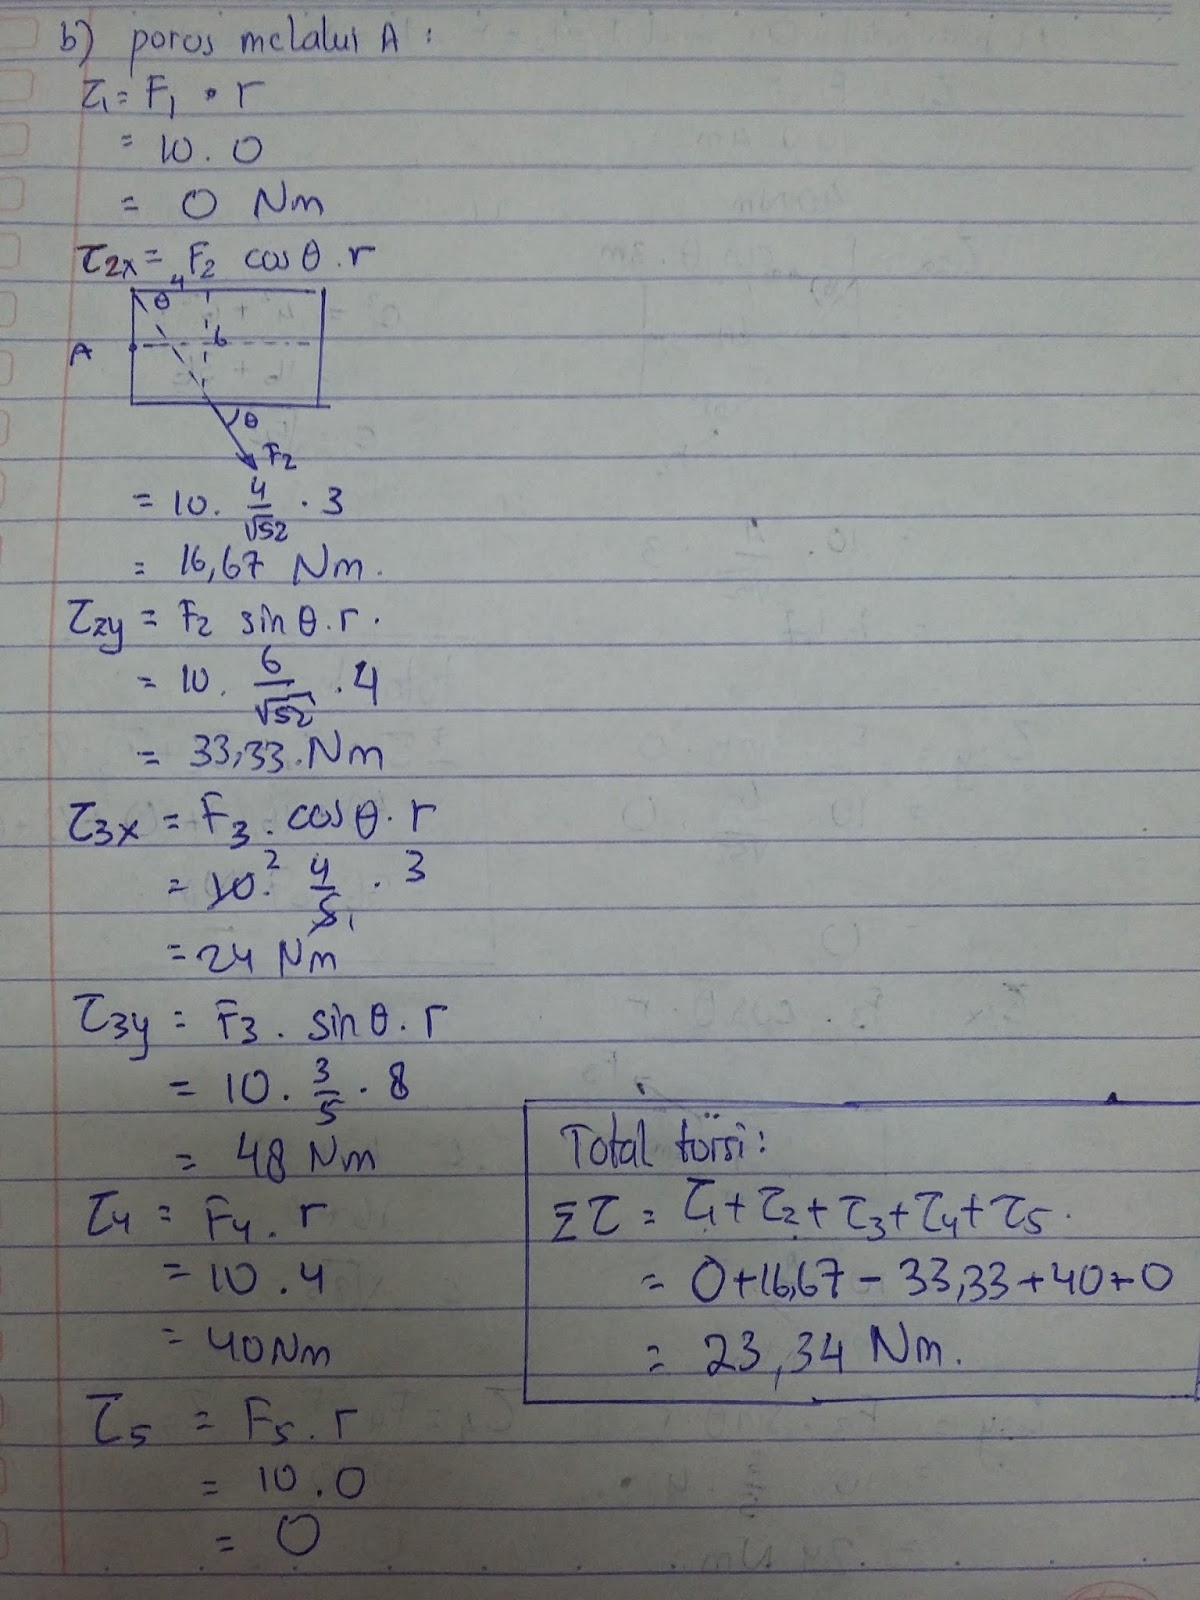 b) poros melalui A :
τ₁ = F₁ • r
= 10 . 0
= 0 Nm
τ₂ₓ = F₂ cos θ . r
4
θ
6
A
θ
F₂
= 10 . 4/√52 . 3
= 16,67 Nm.
τ₂y = F₂ sin θ . r .
= 10 . 6/√52 . 4
= 33,33 . Nm
τ₃ₓ = F₃ . cos θ . r
= 10 ² . 4/5 ₁ . 3
= 24 Nm
τ₃y = F₃ . sin θ . r
= 10 . 3/5 . 8
= 48 Nm
τ₄ = F₄ . r
= 10 . 4
= 40 Nm
τ₅ = F₅ . r
= 10 . 0
= 0
Total torsi :
Στ = τ₁ + τ₂ + τ₃ + τ₄ + τ₅ .
= 0 + 16,67 − 33,33 + 40 + 0
= 23,34 Nm.